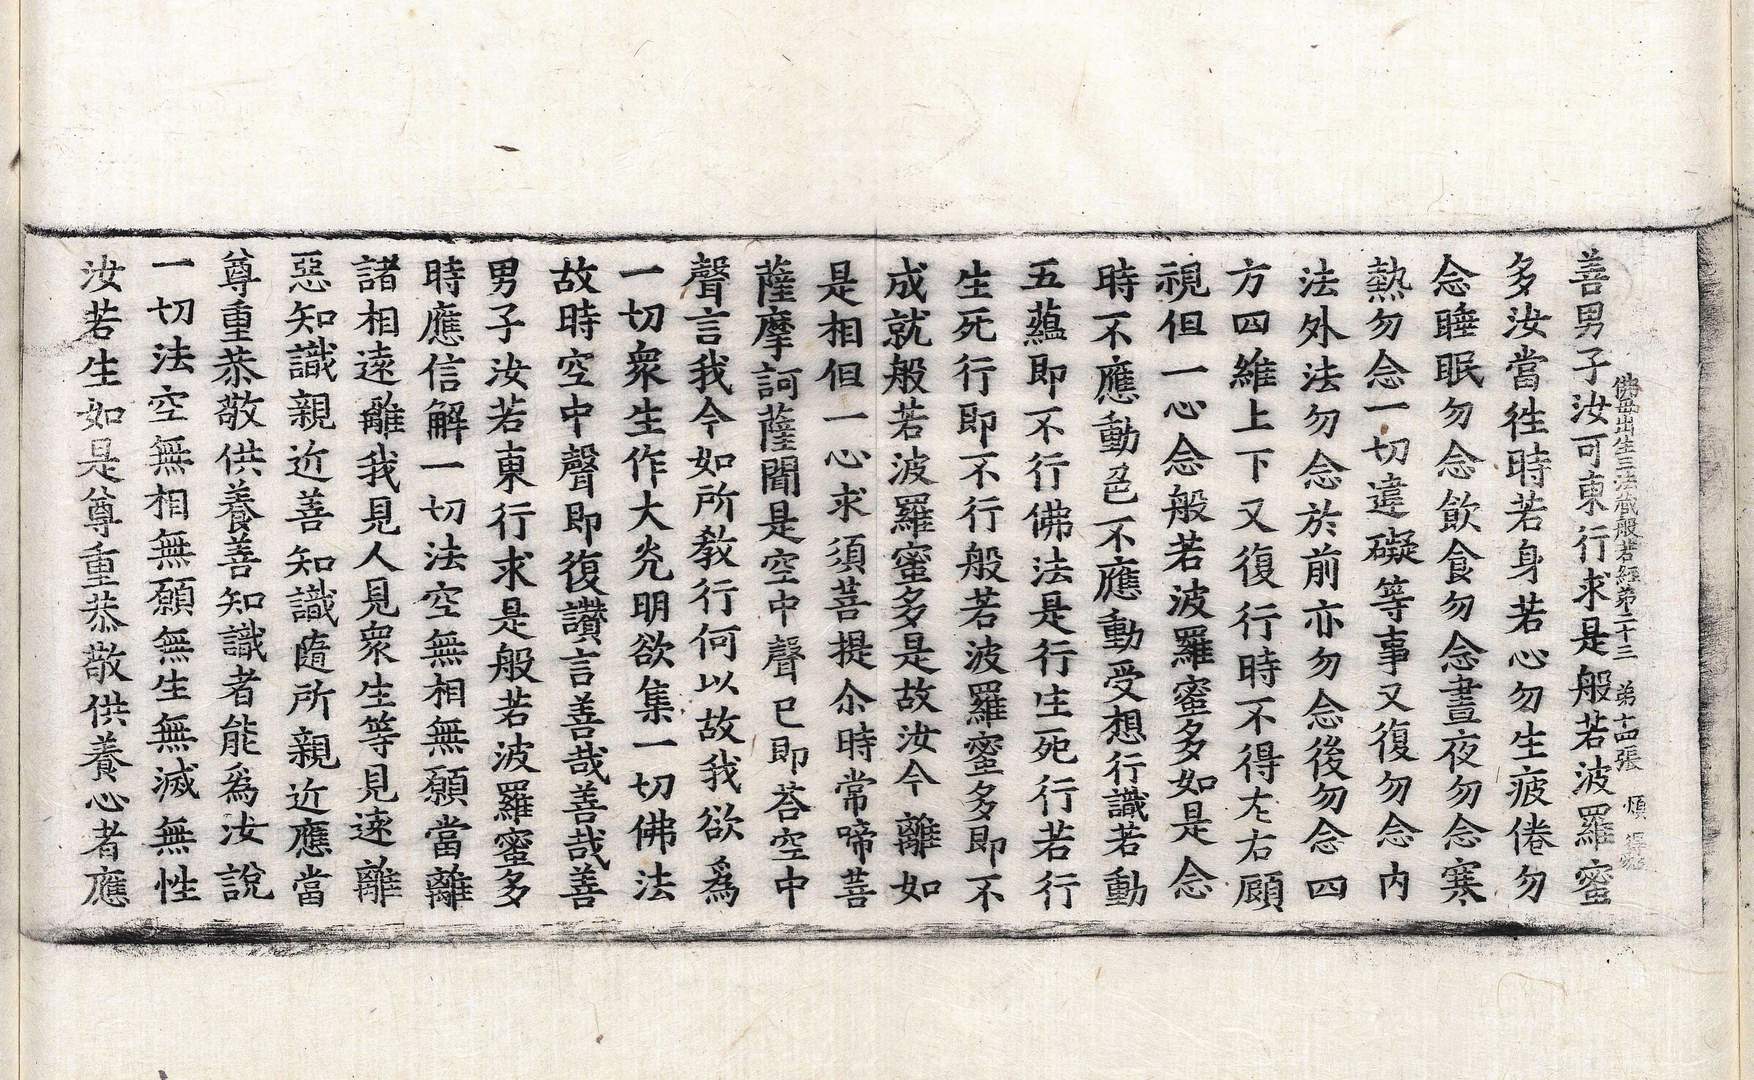 善男子汝可東行求是般若波羅蜜
佛母出生三法藏般若經第二十三 第十四張 煩
多汝當徃時若身若心勿生疲倦勿
念睡眠勿念飲食勿念晝夜勿念寒
熱勿念一切違礙等事又復勿念內
法外法勿念於前亦勿念後勿念四
方四維上下又復行時不得左右顧
視但一心念般若波羅蜜多如是念
時不應動色不應動受想行識若動
五蘊即不行佛法是行生死行若行
生死行即不行般若波羅蜜多即不
成就般若波羅蜜多是故汝今離如
是相但一心求須菩提尒時常啼菩
薩摩訶薩聞是空中聲已即荅空中
聲言我今如所教行何以故我欲爲
一切衆生作大光明欲集一切佛法
故時空中聲即復讚言善哉善哉善
男子汝若東行求是般若波羅蜜多
時應信解一切法空無相無願當離
諸相遠離我見人見衆生等見遠離
惡知識親近善知識隨所親近應當
尊重恭敬供養善知識者能爲汝說
一切法空無相無願無生無滅無性
汝若生如是尊重恭敬供養心者應